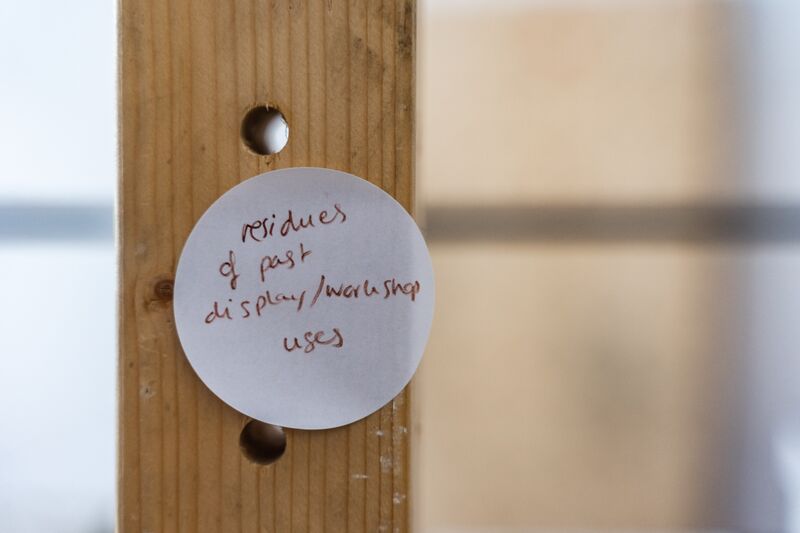 residues
of past
display/workshop
uses